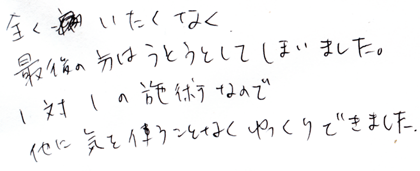 全くいたくなく
最後の方はうとうとしてしまいました。
1対1の施術なので
他に気を使うことなくゆっくりできました.